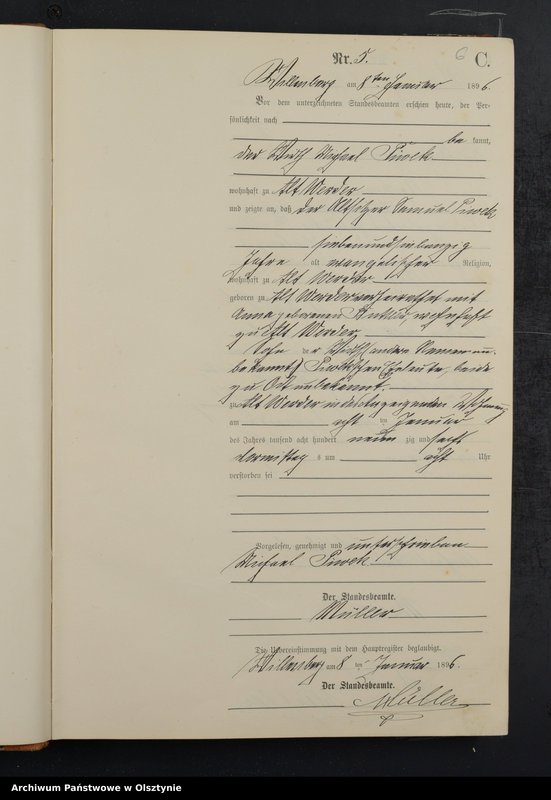 Nr. 5.
6
C.
Willenberg am 8ten Januar 1896.
Vor dem unterzeichneten Standesbeamten erschien heute, der Per-
sönlichkeit nach
be kannt,
der Wirth Michael Piwek
wohnhaft zu Alt Werder
und zeigte an, daß der Altsitzer Samuel Piwek
siebenundsiebenzig
Jahre alt evangelischer Religion,
wohnhaft zu Alt Werder
geboren zu Alt Werder verheirathet mit
Anna geborenen wohnhaft
zu Alt Werder,
Sohn der Wirth (andere Namen un-
bekannt) Piwekschen Eheleute, beide
zu Ort unbekannt.
zu Alt Werder in des Anzeigenden Wohnung
am acht ten Januar
des Jahres tausend acht hundert neun zig und sechs
Vormittag s um acht Uhr
verstorben sei
Vorgelesen, genehmigt und unterschrieben
Michael Piwek
Der Standesbeamte.
Müller
Die Uebereinstimmung mit dem Hauptregister beglaubigt.
Willenberg am 8 ten Januar 1896.
Der Standesbeamte.
Müller
Archiwum Państwowe w Olsztynie